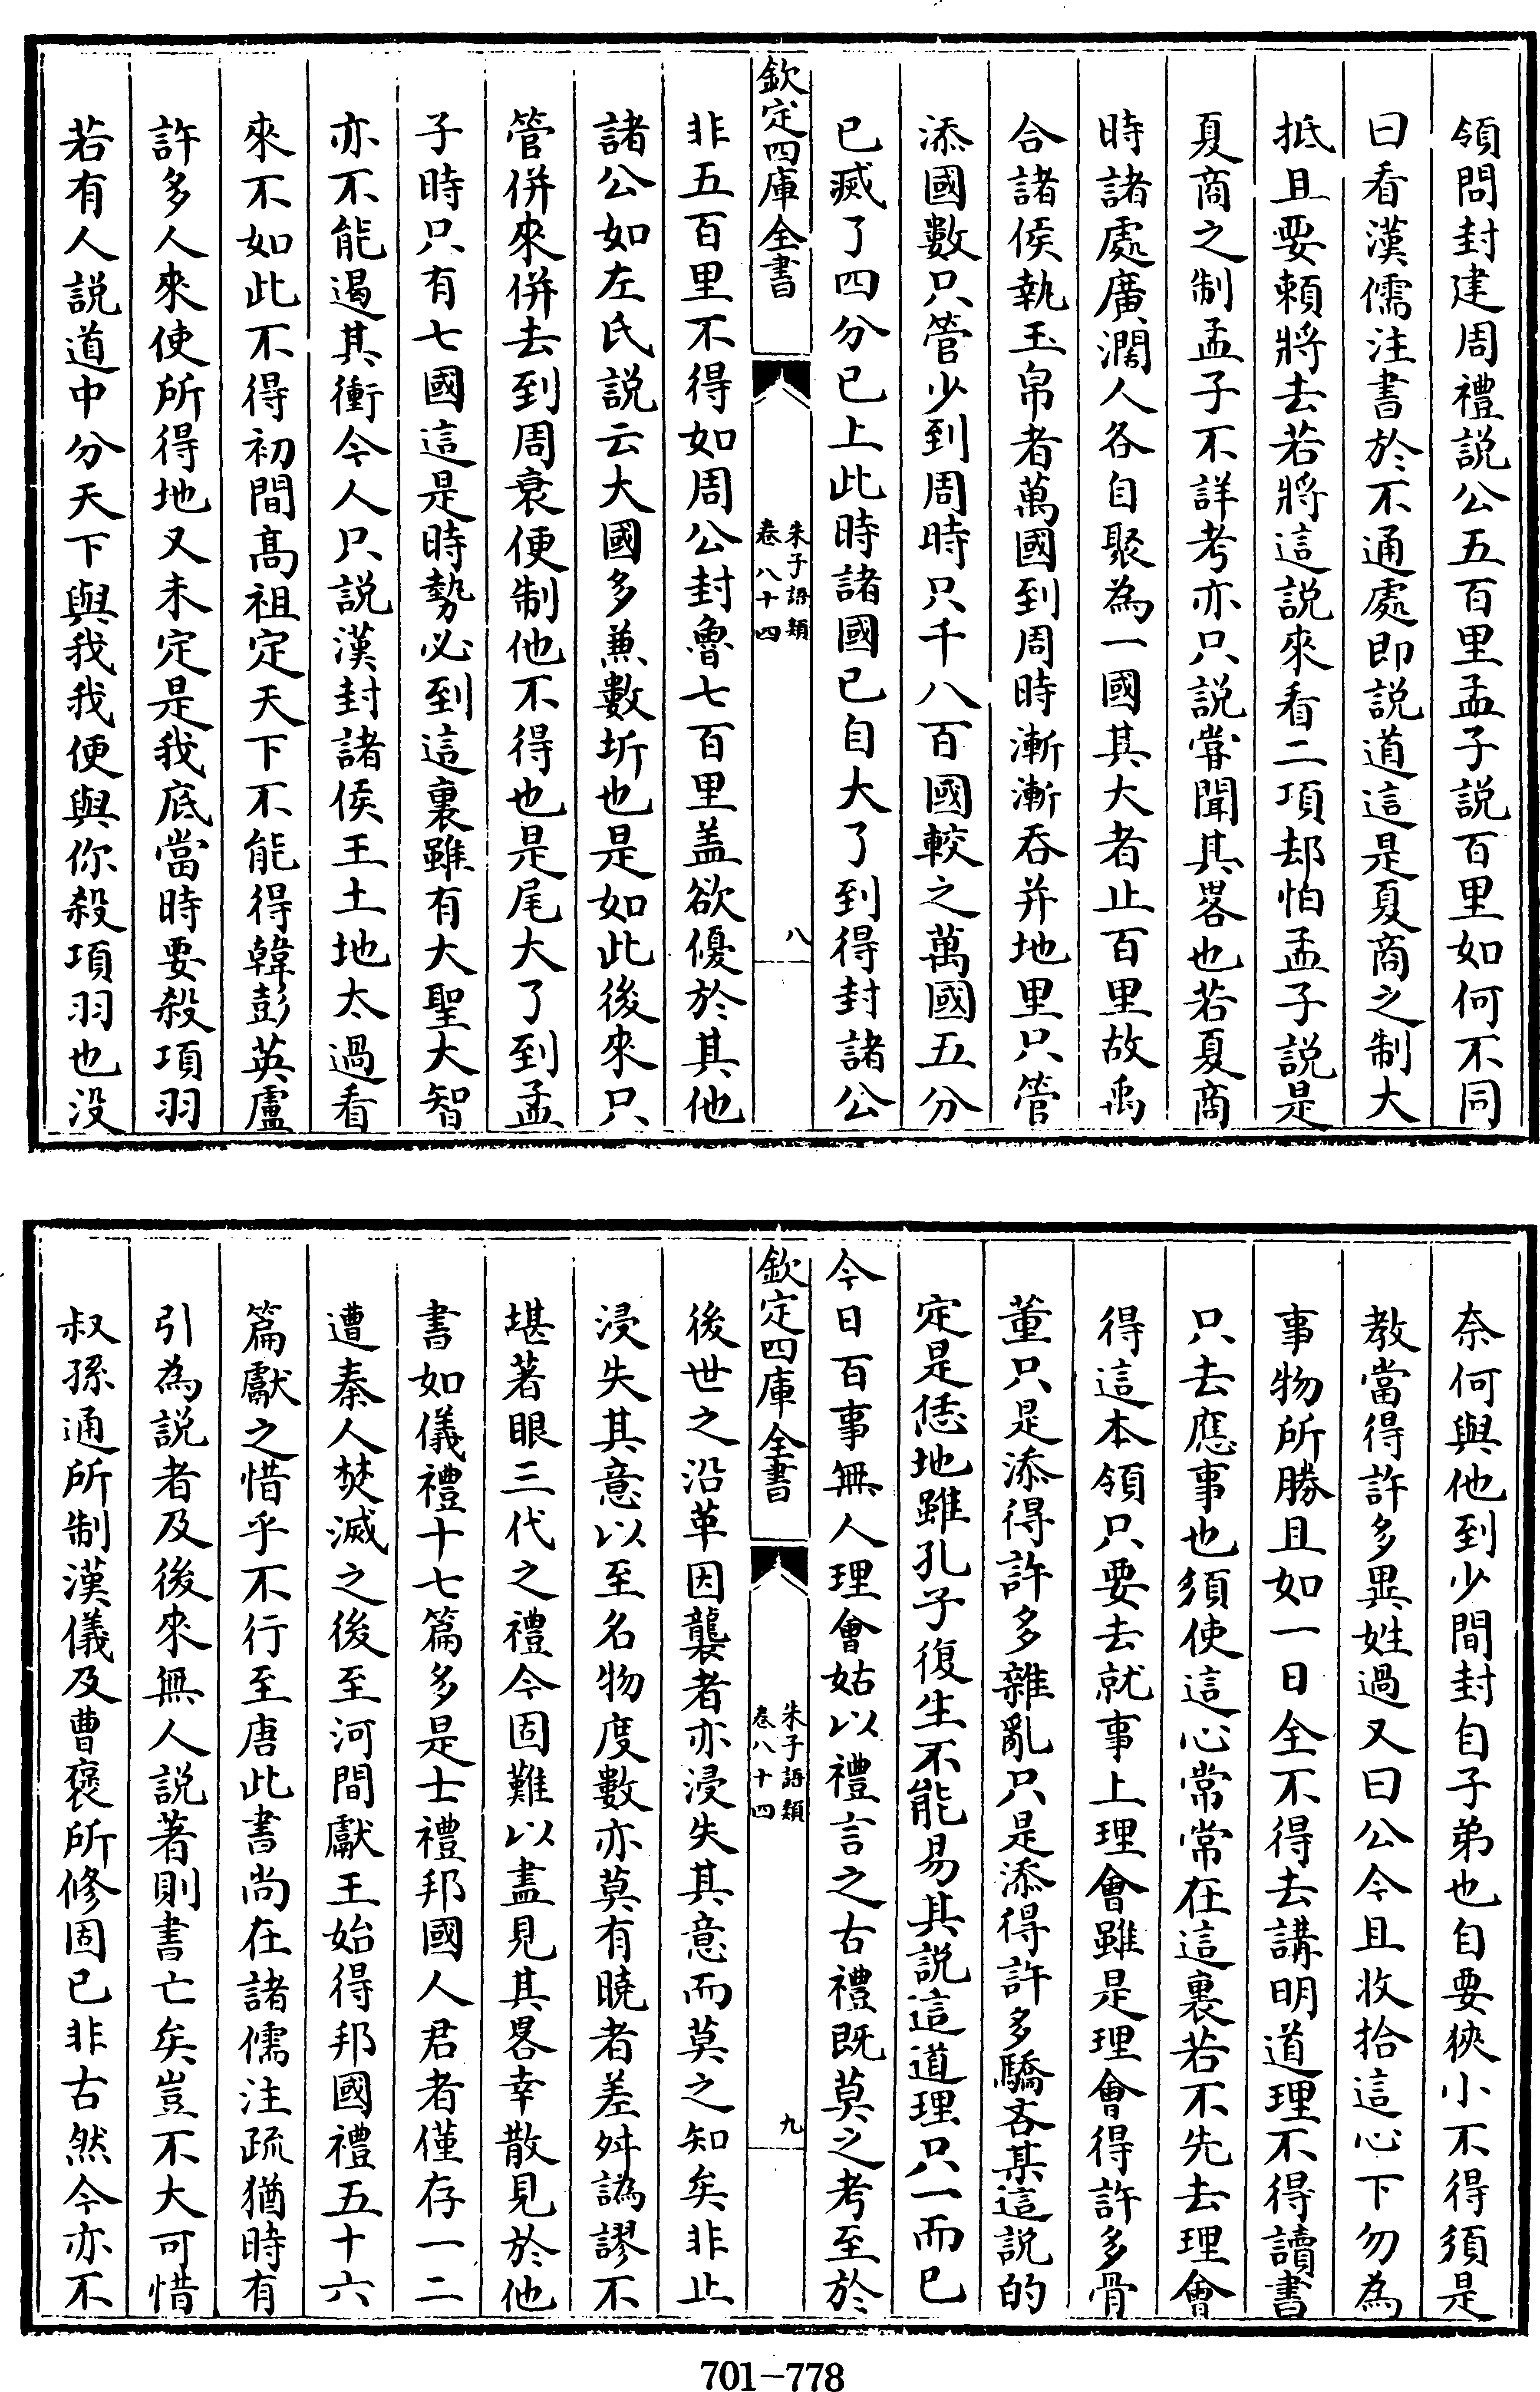 領問封建周禮説公五百里孟子説百里如何不同
曰看漢儒注書於不通處即説道這是夏商之制大
抵且要賴將去若將這説來看二項却怕孟子説是
夏商之制孟子不詳考亦只説甞聞其畧也若夏商
時諸處廣濶人各自聚為一國其大者止百里故禹
合諸侯執玉帛者萬國到周時漸漸吞并地里只管
添國數只管少到周時只千八百國較之萬國五分
已滅了四分已上此時諸國已自大了到得封諸公
欽定四庫全書
朱子語類
卷八十四
八
非五百里不得如周公封魯七百里盖欲優於其他
諸公如左氏説云大國多兼數圻也是如此後來只
管併來併去到周衰便制他不得也是尾大了到孟
子時只有七國這是時勢必到這裏雖有大聖大智
亦不能遏其衝今人只説漢封諸侯王土地太過看
來不如此不得初間髙祖定天下不能得韓彭英盧
許多人來使所得地又未定是我底當時要殺項羽
若有人説道中分天下與我我便與你殺項羽也没
奈何與他到少間封自子弟也自要狹小不得須是
教當得許多異姓過又曰公今且收拾這心下勿為
事物所勝且如一日全不得去講明道理不得讀書
只去應事也須使這心常常在這裏若不先去理會
得這本領只要去就事上理會雖是理會得許多骨
董只是添得許多雜亂只是添得許多驕吝某這説的
定是恁地雖孔子復生不能易其説這道理只一而已
今日百事無人理會姑以禮言之古禮既莫之考至於
欽定四庫全書
朱子語類
卷八十四
九
後世之沿革因襲者亦浸失其意而莫之知矣非止
浸失其意以至名物度數亦莫有曉者差舛譌謬不
堪著眼三代之禮今固難以盡見其畧幸散見於他
書如儀禮十七篇多是士禮邦國人君者僅存一二
遭秦人焚滅之後至河間獻王始得邦國禮五十六
篇獻之惜乎不行至唐此書尚在諸儒注疏猶時有
引為説者及後來無人説著則書亡矣豈不大可惜
叔孫通所制漢儀及曹褒所修固已非古然今亦不
701-778